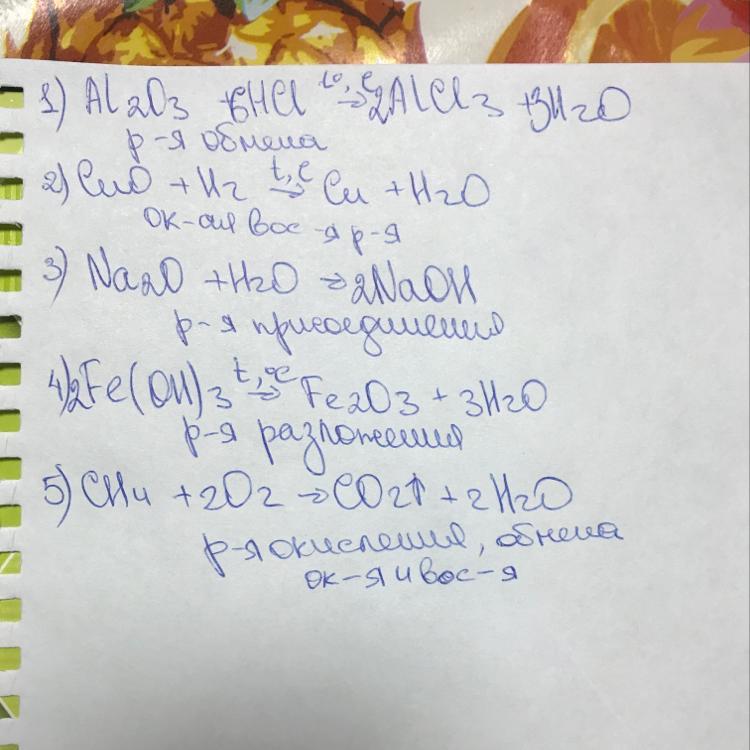 1) Al2O3 +6HCl to,c→ 2AlCl3 +3H2O
р-я обмена
2) CuO + H2 t,c→ Cu + H2O
ок-ая вос-я р-я
3) Na2O + H2O → 2NaOH
р-я присоединения
4) 2Fe(OH)3 t,°c→ Fe2O3 + 3H2O
р-я разложения
5) CH4 + 2O2 → CO2↑ + 2H2O
р-я окисления, обмена
ок-я и вос-я